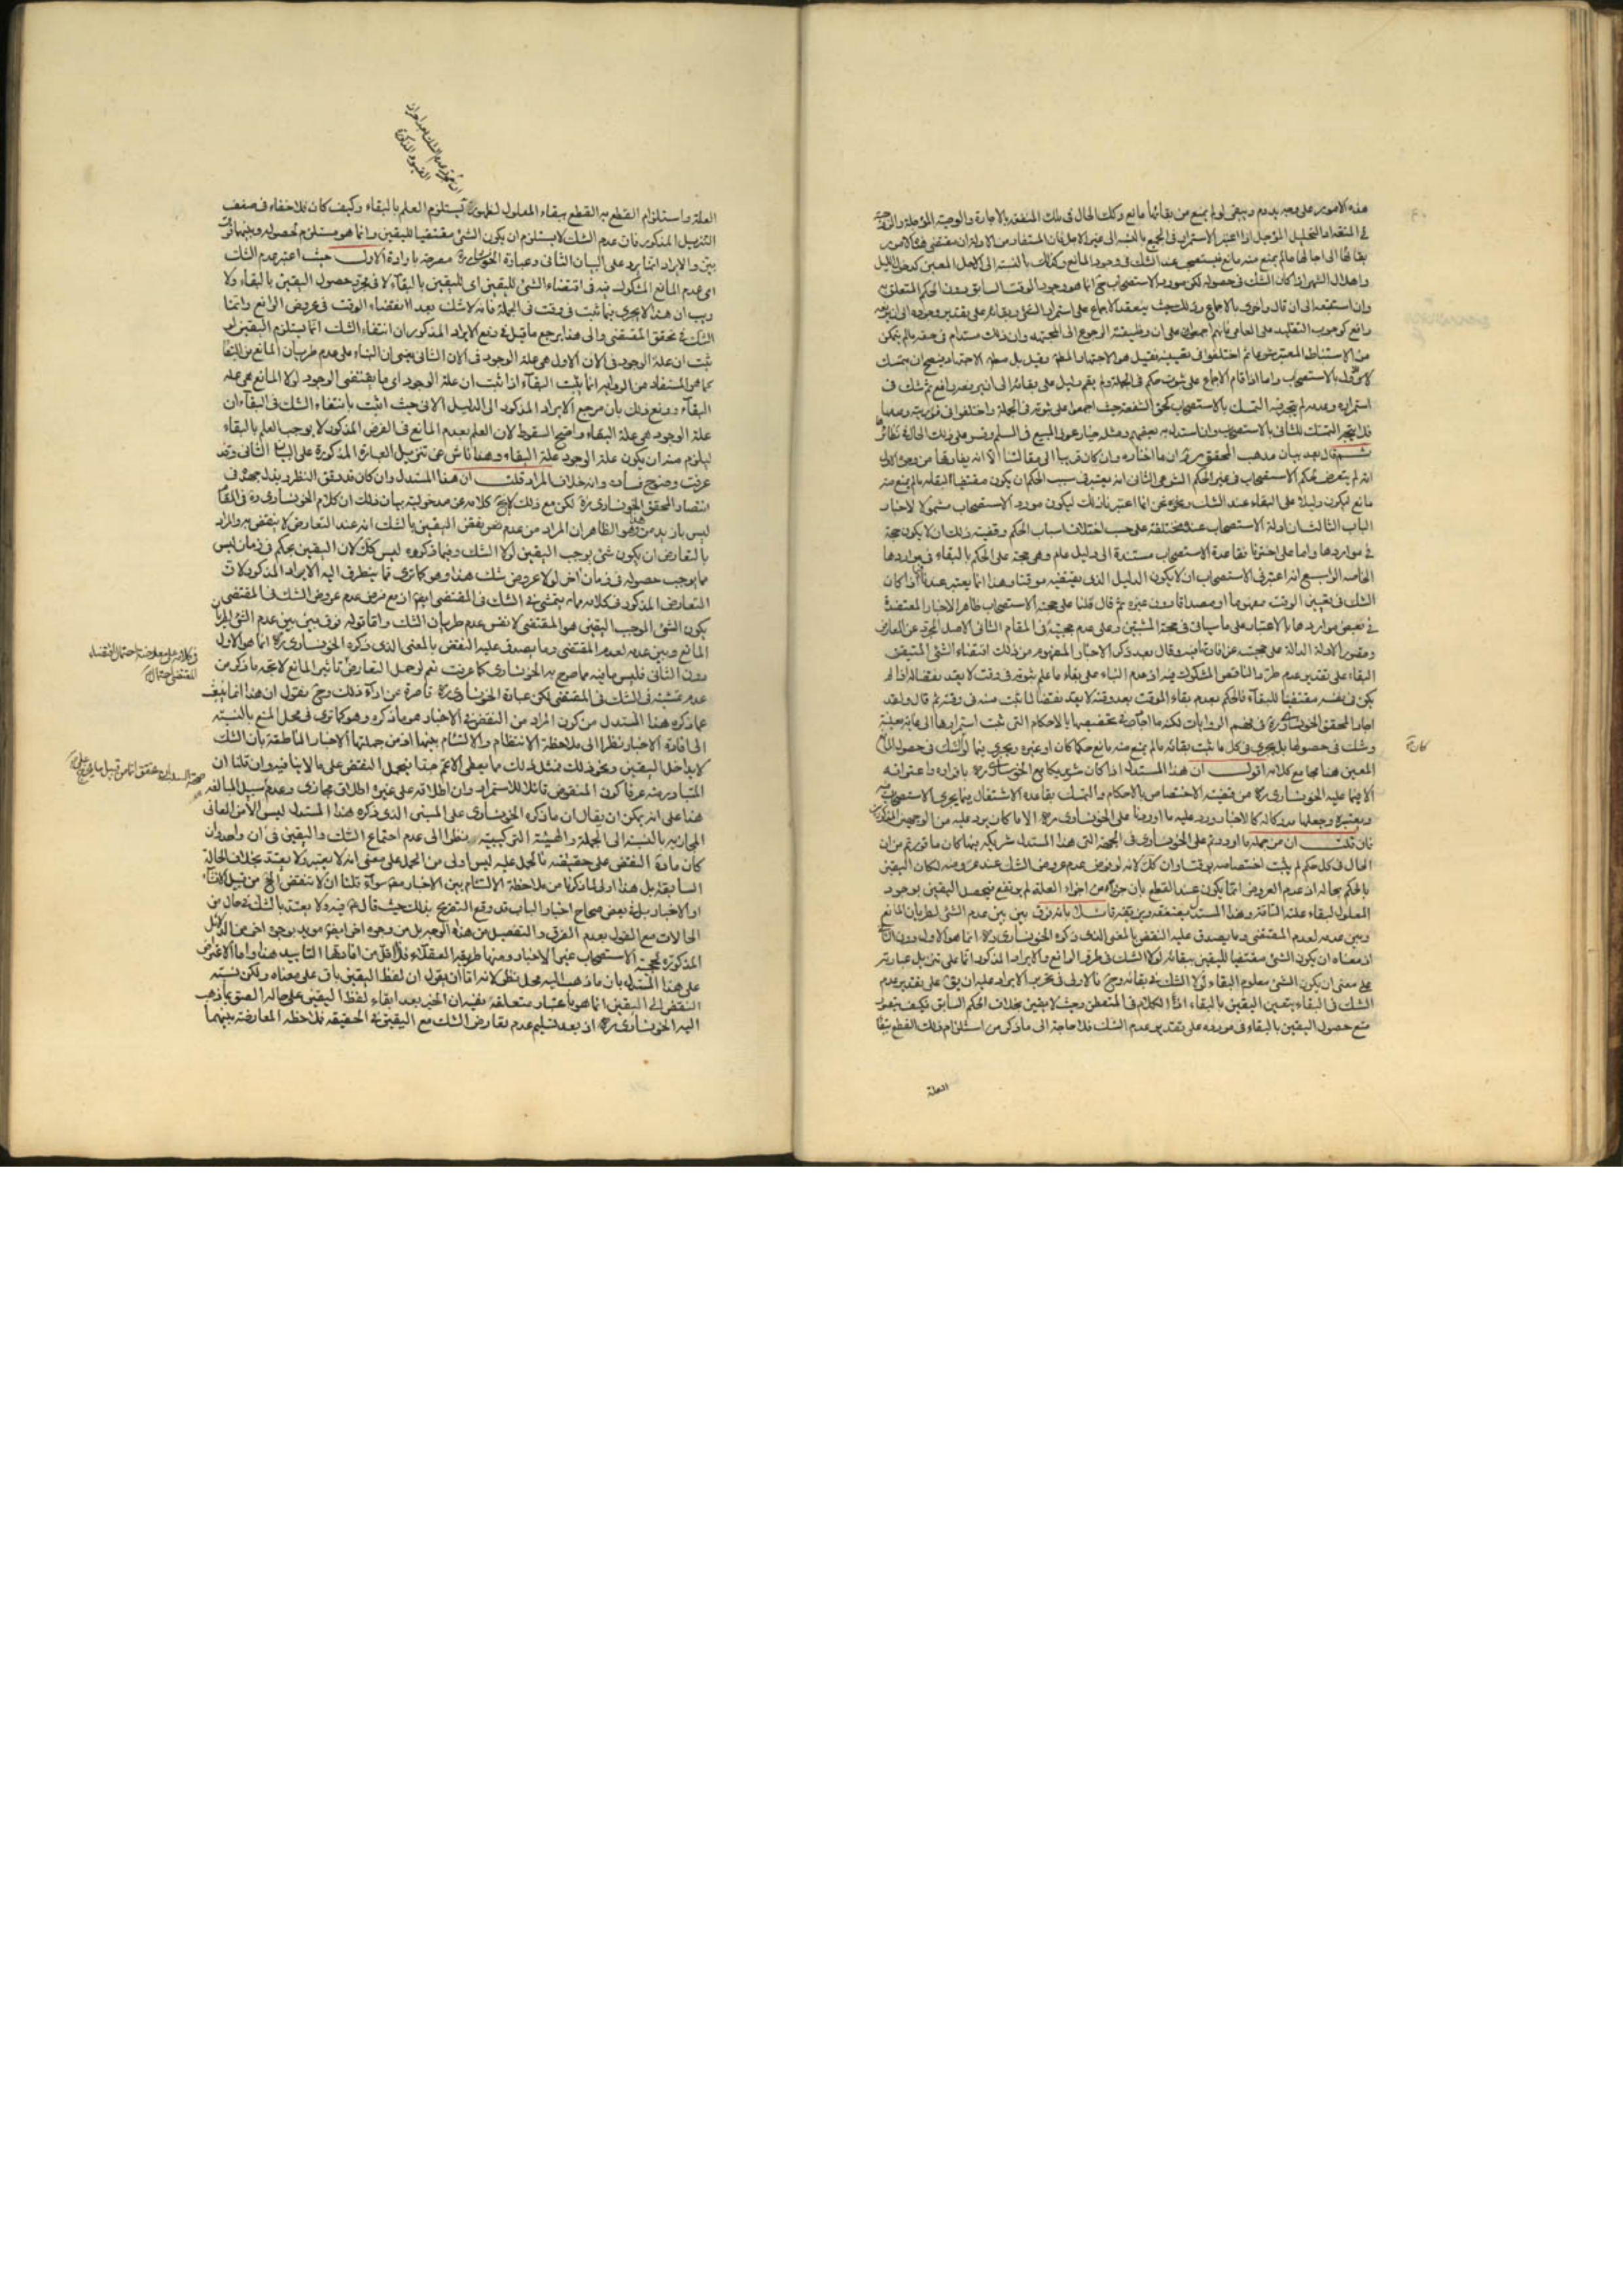 هذه الامور على معنى يدوم ويبقى لو لم يمنع من بقائها مانع وكك الحال فى ملك المنفعة بالاجارة والوصية المؤجلة
فى النقد او التحليل المؤجل اذا اعتبر الاستمرار فى الجميع بالنسبة الى غير الاجل فان المستفاد من الادلة ان مقتضى هذه الامور
بقائها الى اجالها مالم يمنع منه مانع فيستصحب عند الشك فى وجود المانع وكذلك بالنسبة الى الاجل المعين كدخول الليل
واهلال الشهر اذا كان الشك فى حصوله لكن مورد الاستصحاب ح انما هو وجود الوقت السابق دون الحكم المتعلق به
رافع كوجوب التقليد على العامى فانهم اجمعوا على ان وظيفته الرجوع الى المجتهد وان ذلك مستدام فى حقه مالم يتمكن
من الاستنباط المعتبر شرعا ثم اختلفوا فى تعيينه فقيل هو الاجتهاد المطلق وقيل بل مطلق الاجتهاد فيتجه ان يتمسك
الاول بالاستصحاب واما اذا قام الاجماع على ثبوت حكم فى الجملة ولم يقم دليل على بقائه الى ان يعرضه رافع ثم شك فى
استمراره وعدمه لم يتجه فيه التمسك بالاستصحاب كحق الشفعة حيث اجمعوا على ثبوته فى الجملة واختلفوا فى فوريته وعدمها
فلا يتجه التمسك للثانى بالاستصحاب وان استدل به بعضهم ومثله خيار عول المبيع فى السلم وقس على ذلك الحال فى نظائر
ثم قال بعد بيان مذهب المحقق ره ان ما اختاره وان كان قريبا الى مقالتنا الا انه يفارقها من وجوه الاول
انه لم يتعرض لحكم الاستصحاب فى غير الحكم الشرعى الثانى انه يعتبر فى سبب الحكم ان يكون مقتضيا لبقائه مالم يمنع منه
مانع ليكون دليلا على البقاء عند الشك ونحن انما اعتبرنا ذلك ليكون مورد الاستصحاب مشمولا لاخبار
الباب الثالث ان ادلة الاستصحاب عنده مختلفة على حسب اختلاف اسباب الحكم وقضية ذلك ان لا يكون حجة
فى مواردها واما على اخترنا فقاعدة الاستصحاب مستندة الى دليل عام وهى حجة على الحكم بالبقاء فى مواردها
الخاصة الرابع انه اعتبر فى الاستصحاب ان لا يكون الدليل الذى يقتضيه موقتا وهذا انما يعتبر عندنا اذا كان
الشك فى تعيين الوقت مفهوما او مصداقا دون غيره ثم قال قلنا على حجية الاستصحاب ظاهر الاخبار المعتضدة
فى بعض مواردها بالاعتبار على ما سيأتى فى حجة المثبتين وعلى عدم حجيته فى المقام الثانى الاصل المجرد عن المعارض
وقصور الادلة الدالة على حجيته عن افادتها فيه وقال بعد ذكر الاخبار المفهوم من ذلك اقتضاء الشئ المتيقن
البقاء على تقدير عدم طرو الناقض المشكوك فيه اذ عدم البناء على بقاء ما علم ثبوته فى وقت لا يعد نقضا له اذا لم
يكن فى نفسه مقتضيا للبقاء فالحكم بعدم بقاء الموقت بعد وقته لا يعد نقضا لما ثبت منه فى وقته ثم قال ولقد
اجاد المحقق الخونسارى ره فى فهم الروايات لكنه ما اجاد فى تخصيصها بالاحكام التى ثبت استمرارها الى غاية معينة
وشك فى حصولها بل يجرى فى كل ما يثبت بقائه مالم يمنع منه مانع حكما كان او غيره ويجرى فيما لو شك فى حصول المانع
المعين هنا مجامع كلامه اقول ان هذا المستدل اذا كان شريكا مع الخونسارى ره بافراده واعترافه
الا فيما عليه الخونسارى ره من قضية الاختصاص بالاحكام والتمسك بقاعدة الاشتغال فيما يجرى الاستصحاب فيه
ويعتبره وجعلها مدركا له كالاخبار ورد عليه ما اوردنا على الخونسارى ره الا ما كان يرد عليه من الوجهين المذكورين
فان قلت ان من جملة ما اوردتم على الخونسارى فى الجهة التى هذا المستدل شريكه فيها كان ما قررتم من ان
الحال فى كل حكم لم يثبت اختصاصه بوقت وان كك لانه لو فرض عدم عروض الشك عند عروضه لكان اليقين
بالحكم بحاله اذ عدم العروض انما يكون عند القطع بان جزء من اجزاء العلة لم يرتفع فيحصل اليقين بوجود
المعلول لبقاء علته التامة وهذا المستدل
وبين عدمه لعدم المقتضى وما يصدق عليه النقض بالمعنى الذى ذكره الخونسارى ره انما هو الاول دون الثانى
اذ معناه ان يكون الشئ مقتضيا لليقين ببقائه لولا الشك فى طرو الرافع والايراد المذكور انما على تنزيل عبارته
على معنى ان يكون الشئ معلوم البقاء لولا الشك فى بقائه وح فالاولى فى تحرير الايراد عليه ان يق على تقدير عدم
الشك فى البقاء يتعين اليقين بالبقاء اذ الكلام فى المتفطن وحيث لا يقين بخلاف الحكم السابق فكيف يتصور
منع حصول اليقين بالبقاء فى مورده على تقدير عدم الشك فلا حاجة الى ما ذكر من استلزام ذلك القطع ببقاء
العلة
العلة واستلزام القطع به القطع ببقاء المعلول يستلزم العلم بالبقاء وكيف كان فلا خفاء فى ضعف
التنزيل المذكور فان عدم الشك لا يستلزم ان يكون الشئ مقتضيا لليقين وانما هو مستلزم لحصوله وبينهما فرق
بين والايراد انما يرد على البيان الثانى وعبارة الخونسارى ره مصرحة بارادة الاول حيث اعتبر عدم الشك
اى عدم المانع المشكوك فيه فى اقتضاء الشئ لليقين اى لليقين بالبقاء لا فى مجرد حصول اليقين بالبقاء ولا
ريب ان هذا لا يجرى فيما ثبت فى وقت فى الجملة فانه لا شك بعد انقضاء الوقت فى عروض الرافع وانما
الشك فى تحقق المقتضى والى هذا يرجع ما قيل فى دفع الايراد المذكور ان انتفاء الشك انما يستلزم اليقين لو
ثبت ان علة الوجود فى الان الاول هى علة الوجود فى الان الثانى يعنى ان البناء على عدم طريان المانع من البقاء
كما هو المستفاد من الرواية انما يثبت البقاء اذا ثبت ان علة الوجود اى ما يقتضى الوجود لولا المانع هى علة
البقاء ودفع ذلك بان مرجع الايراد المذكور الى الدليل الانى حيث اثبت بانتفاء الشك فى البقاء ان
علة الوجود هى علة البقاء واضح السقوط لان العلم بعدم المانع فى الفرض المذكور لا يوجب العلم بالبقاء
ليلزم منه ان يكون علة الوجود علة البقاء وهذا ناش عن تنزيل العبارة المذكورة على البيان الثانى وقد
عرفت وضوح فساده وانه خلاف المراد قلت ان هذا المستدل وان كان قد دقق النظر وبذل جهده فى
انتصار المحقق الخونسارى ره لكن مع ذلك لا يخ كلامه عن مدخولية بيان ذلك ان كلام الخونسارى ره فى المقام
ليس بازيد من قوله هذا الظاهر ان المراد من عدم نقض اليقين بالشك انه عند التعارض لا ينقض به والمراد
بالتعارض ان يكون شئ يوجب اليقين لولا الشك وفيما ذكروه ليس كك لان اليقين بحكم فى زمان ليس
مما يوجب حصوله فى زمان اخر لولا عروض شك هذا وهو كما ترى مما يتطرق اليه الايراد المذكور لان
التعارض المذكور فى كلامه مما يتمشى فى الشك فى المقتضى ايضا اذ مع فرض عدم عروض الشك فى المقتضى
يكون الشئ الموجب اليقين هو المقتضى لا نفس عدم طريان الشك واما قوله فرق بين بين عدم الشئ لطريان
المانع وبين عدمه لعدم المقتضى وما يصدق عليه النقض بالمعنى الذى ذكره الخونسارى ره انما هو الاول
دون الثانى فليس ما فيه مما صرح به الخونسارى كما عرفت نعم لو حمل التعارض تاثير المانع لاتجه ما ذكر من
عدم تمشيه فى الشك فى المقتضى لكن عبارة الخونسارى ره قاصرة عن افادة ذلك وح نقول ان هذا انما
عما ذكره هذا المستدل من كون المراد من النقض فى الاخبار هو ما ذكره وهو كما ترى فى محل المنع بالنسبة
الى افادة الاخبار نظرا الى ملاحظة الانتظام والالتئام بينها اذ من جملتها الاخبار الناطقة بان الشك
لا يداخل اليقين ونحو ذلك فمثل ذلك مما يعطى الاعم جدا فيحمل النقض على ما لا ينافيه وان قلنا ان
المتبادر منه عرفا كون المنقوض قابلا للاستمرار وان اطلاقه على غيره اطلاق مجازى وعدم سبيل المبالغة
هذا على انه يمكن ان يقال ان ما ذكره الخونسارى على المبنى الذى ذكره هذا المستدل ليس الا من المعانى
المجازية بالنسبة الى الجملة والهيئة التركيبية نظرا الى عدم اجتماع الشك واليقين فى ان واحد وان
كان مادة النقض على حقيقته فالحمل عليه ليس اولى من الحمل على معنى انه لا يعتبر ولا يعتد بخلاف الحالة
السابقة بل هذا اولى لما ذكرنا من ملاحظة الالتئام بين الاخبار سواء قلنا ان لا تنقض الخ من قبيل الانشاء
او الاخبار بل فى بعض صحاح اخبار الباب قد وقع التصريح بذلك حيث قال ع فيه ولا يعتد بالشك فى حال من
الحالات مع القول بعدم الفرق والتفصيل من هذه الوجه بل من وجوه اخر ايضا مؤيد بوجوه اخر
المذكورة لحجية الاستصحاب غير الاخبار ومنها طريقة العقلاء فلا اقل من افادتها التأييد هنا واما الاعتراض
على هذا المستدل بان ما ذهب اليه محل نظر لانه اما ان يقول ان لفظ اليقين باق على معناه ولكن نسبة
النقض الى اليقين انما هو باعتبار متعلقه ففيه ان الخبر بعد ابقاء لفظ اليقين على حاله الصق بما ذهب
اليه الخونسارى ره اذ بعد تسليم عدم تعارض الشك مع اليقين فى الحقيقة فملاحظة المعارضة بينهما